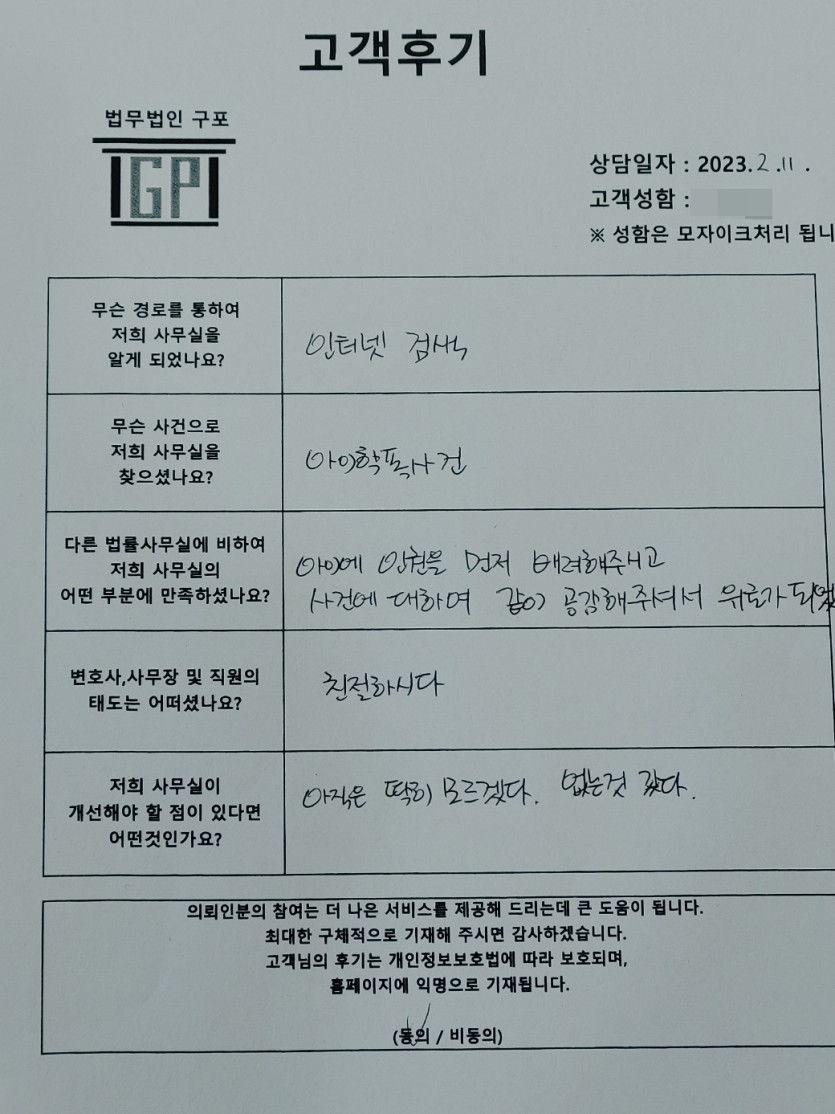 고객후기
법무법인 구포
GP
상담일자 : 2023.2.11.
고객성함 :
※ 성함은 모자이크처리 됩니
무슨 경로를 통하여
저희 사무실을
알게 되었나요?
인터넷 검색
무슨 사건으로
저희 사무실을
찾으셨나요?
아이학폭사건
다른 법률사무실에 비하여
저희 사무실의
어떤 부분에 만족하셨나요?
아이에 인권을 먼저 배려해주시고
사건에 대하여 같이 공감해주셔서 위로가 되었
변호사,사무장 및 직원의
태도는 어떠셨나요?
친절하시다
저희 사무실이
개선해야 할 점이 있다면
어떤것인가요?
아직은 딱히 모르겠다. 없는것 같다.
의뢰인분의 참여는 더 나은 서비스를 제공해 드리는데 큰 도움이 됩니다.
최대한 구체적으로 기재해 주시면 감사하겠습니다.
고객님의 후기는 개인정보보호법에 따라 보호되며,
홈페이지에 익명으로 기재됩니다.
(동의 / 비동의)